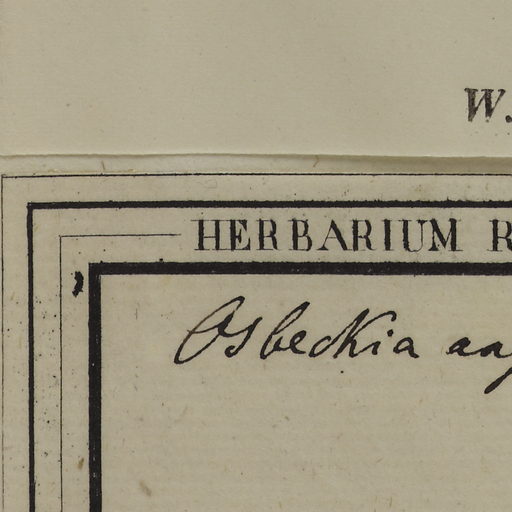 W.
HERBARIUM R
Osbeckia